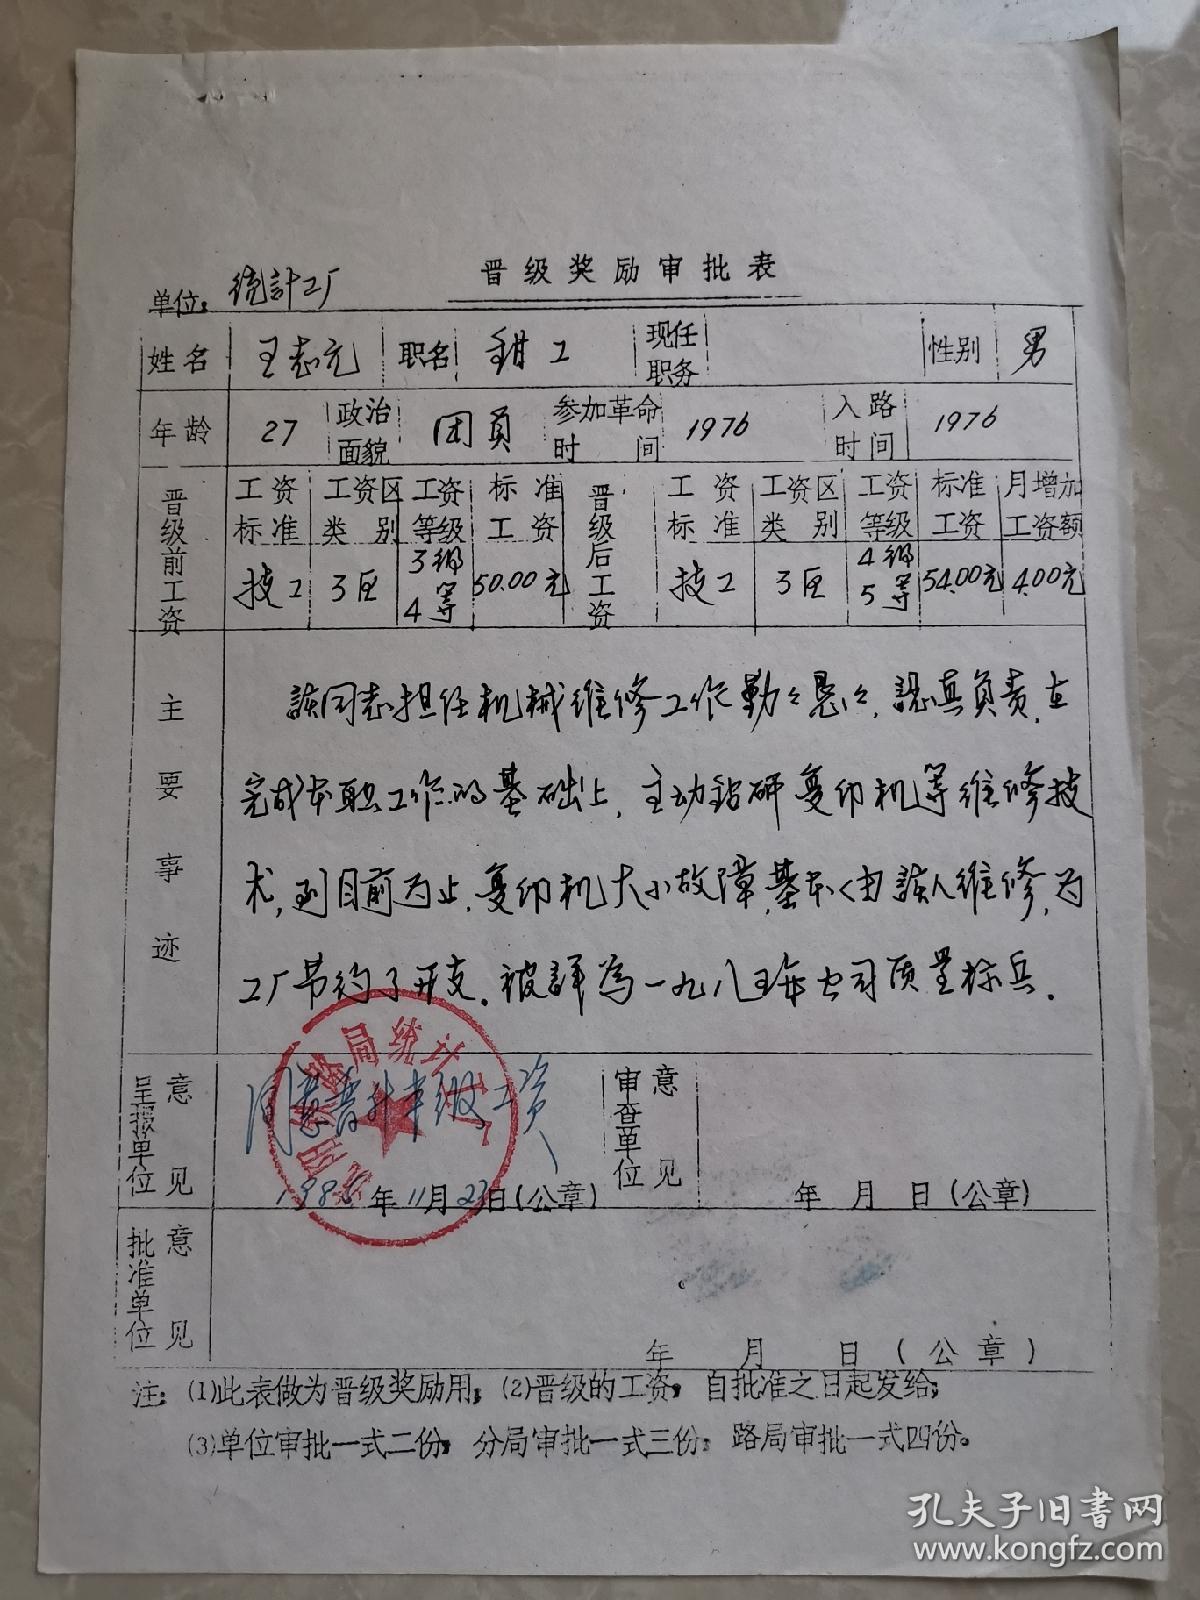 晋级奖励审批表
单位：统計工厂
姓名 王志元 职名 钳工 现任职务 性别 男
年龄 27 政治面貌 团员 参加革命时间 1976 入路时间 1976
晋级前工资 工资标准 工资区类别 工资等级 标准工资 晋级后工资 工资标准 工资区类别 工资等级 标准工资 月增加工资额
技工 3区 3级4等 50.00元 技工 3区 4级5等 54.00元 4.00元
主要事迹
該同志担任机械维修工作勤々恳々，認真负责，在
完成本职工作的基础上，主动钻研复印机等维修技
术，到目前为止，复印机大小故障，基本由該人维修，为
工厂节约了开支。被評為一九八五年公司质量标兵。
呈报单位意见 同意晋升半级工资 审查单位意见
路局统计工厂
1985年11月23日(公章) 年 月 日(公章)
批准单位意见
年 月 日(公章)
注：(1)此表做为晋级奖励用；(2)晋级的工资，自批准之日起发给；
(3)单位审批一式二份，分局审批一式三份，路局审批一式四份。
孔夫子旧书网
www.kongfz.com